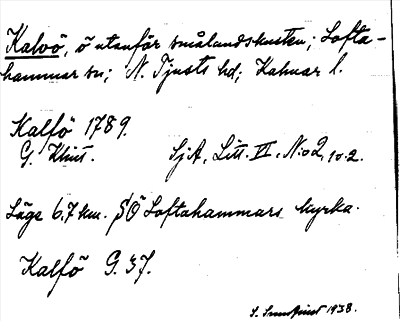 Kalvö, ö utanför smålandskusten; Lofta-
hammar sn; N. Tjusts hd; Kalmar l.
Kalfö 1789.
G. Klint. SjA, Litt. VI, N:o 2, 10.2.
Läge 6,7 km. SÖ Loftahammars kyrka.
Kalfö G. 37.
S. 1938.